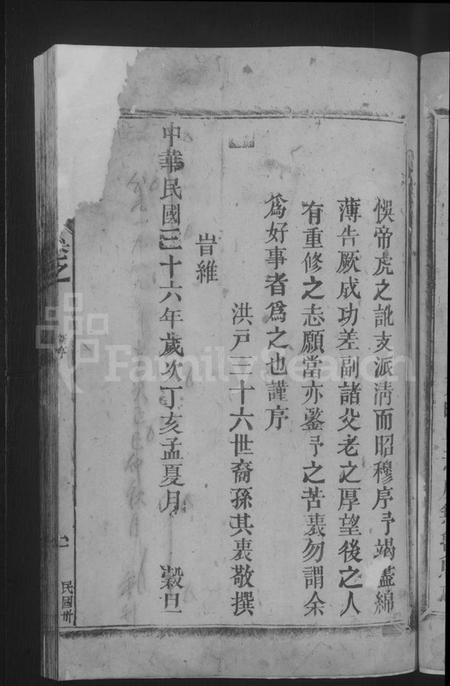 悞帝虎之訛支派淸而昭穆序予竭藎綿
薄告厥成功差副諸父老之厚望後之人
有重修之志願當亦鑒予之苦衷勿謂余
爲好事者爲之也謹序
洪戸三十六世裔孫其衷敬撰
旹維
中華民國三十六年歲次丁亥孟夏月 穀旦
民國卅
FamilySearch